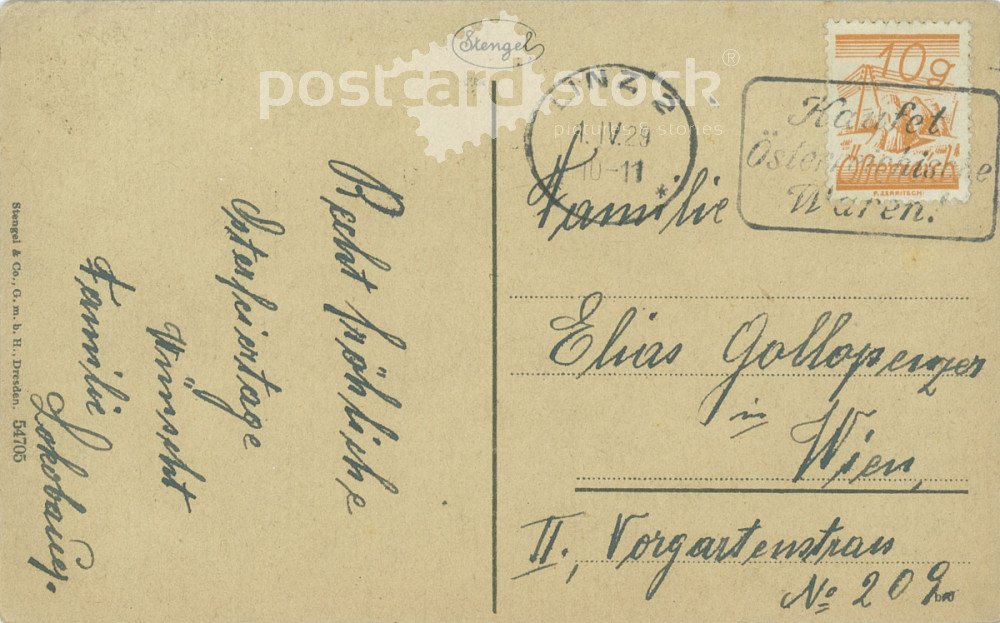 Stengel
postcardstock®
pictures & stories
LINZ 2
1.IV.29
10-11
*
Kaufet
Österreichische
Waren!
10g
Österreich
Recht fröhliche
Osterfeiertage
Wünscht
Familie
Familie
Elias Gollopenzer
in
Wien,
II., Vorgartenstrass
No 209
Stengel & Co., G. m. b. H., Dresden. 54705